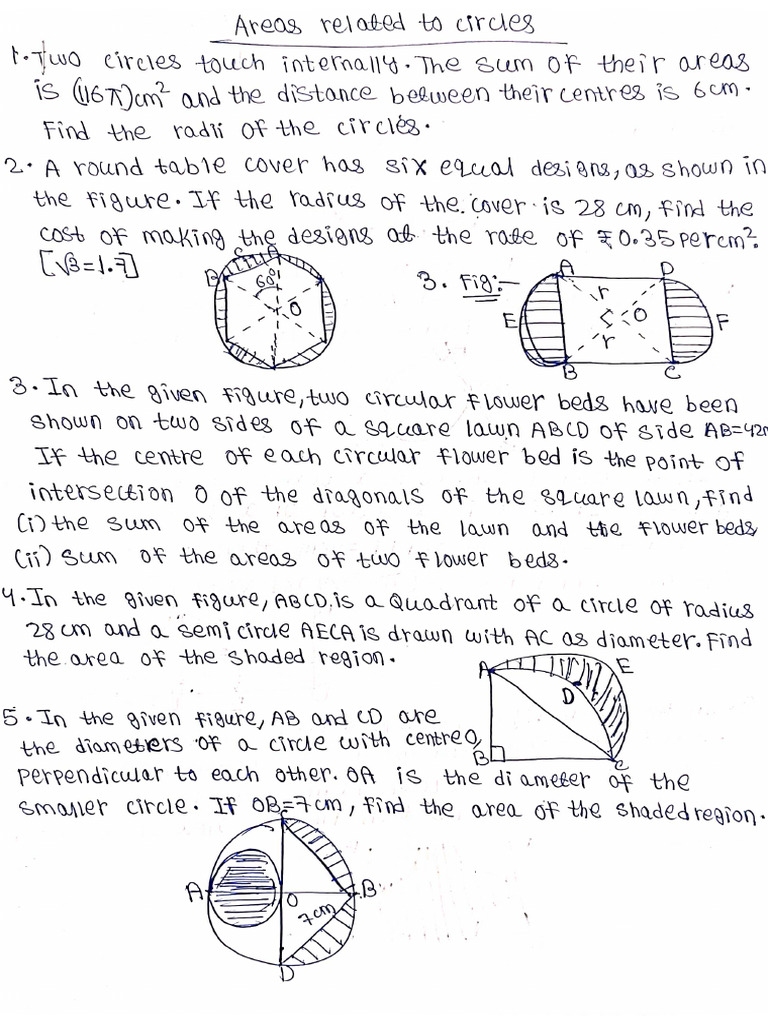 Areas related to circles
1. Two circles touch internally. The sum of their areas
is (116π)cm² and the distance between their centres is 6cm.
Find the radii of the circles.
2. A round table cover has six equal designs, as shown in
the figure. If the radius of the cover is 28 cm, find the
cost of making the designs at the rate of ₹0.35 per cm².
[√3=1.7]
C A
B 60° O
3. Fig:-
A D
E r O F
r
B C
3. In the given figure, two circular flower beds have been
shown on two sides of a square lawn ABCD of side AB=42m
If the centre of each circular flower bed is the point of
intersection O of the diagonals of the square lawn, find
(i) the sum of the areas of the lawn and the flower beds
(ii) sum of the areas of two flower beds.
4. In the given figure, ABCD, is a Quadrant of a circle of radius
28 cm and a semi circle AECA is drawn with AC as diameter. Find
the area of the shaded region.
A E
D
B C
5. In the given figure, AB and CD are
the diameters of a circle with centre O,
perpendicular to each other. OA is the diameter of the
smaller circle. If OB=7cm, find the area of the shaded region.
C
A O B
7cm
D